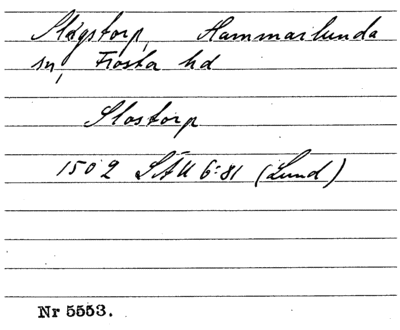 Slågstorp, Hammarlunda
sn, Frosta hd
Slostorp
1502 SÄU 6:81 (Lund)
Nr 5553.